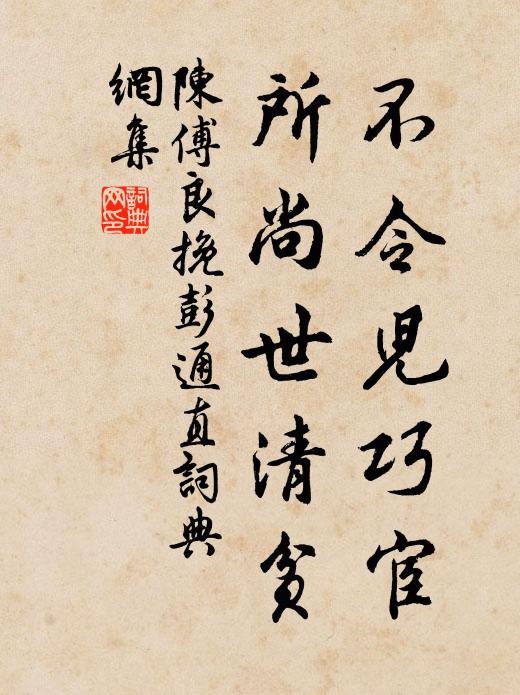 不令兒巧宦
所尚世清貧
陳傅良挽彭通直詞典
網集
詞典
網印